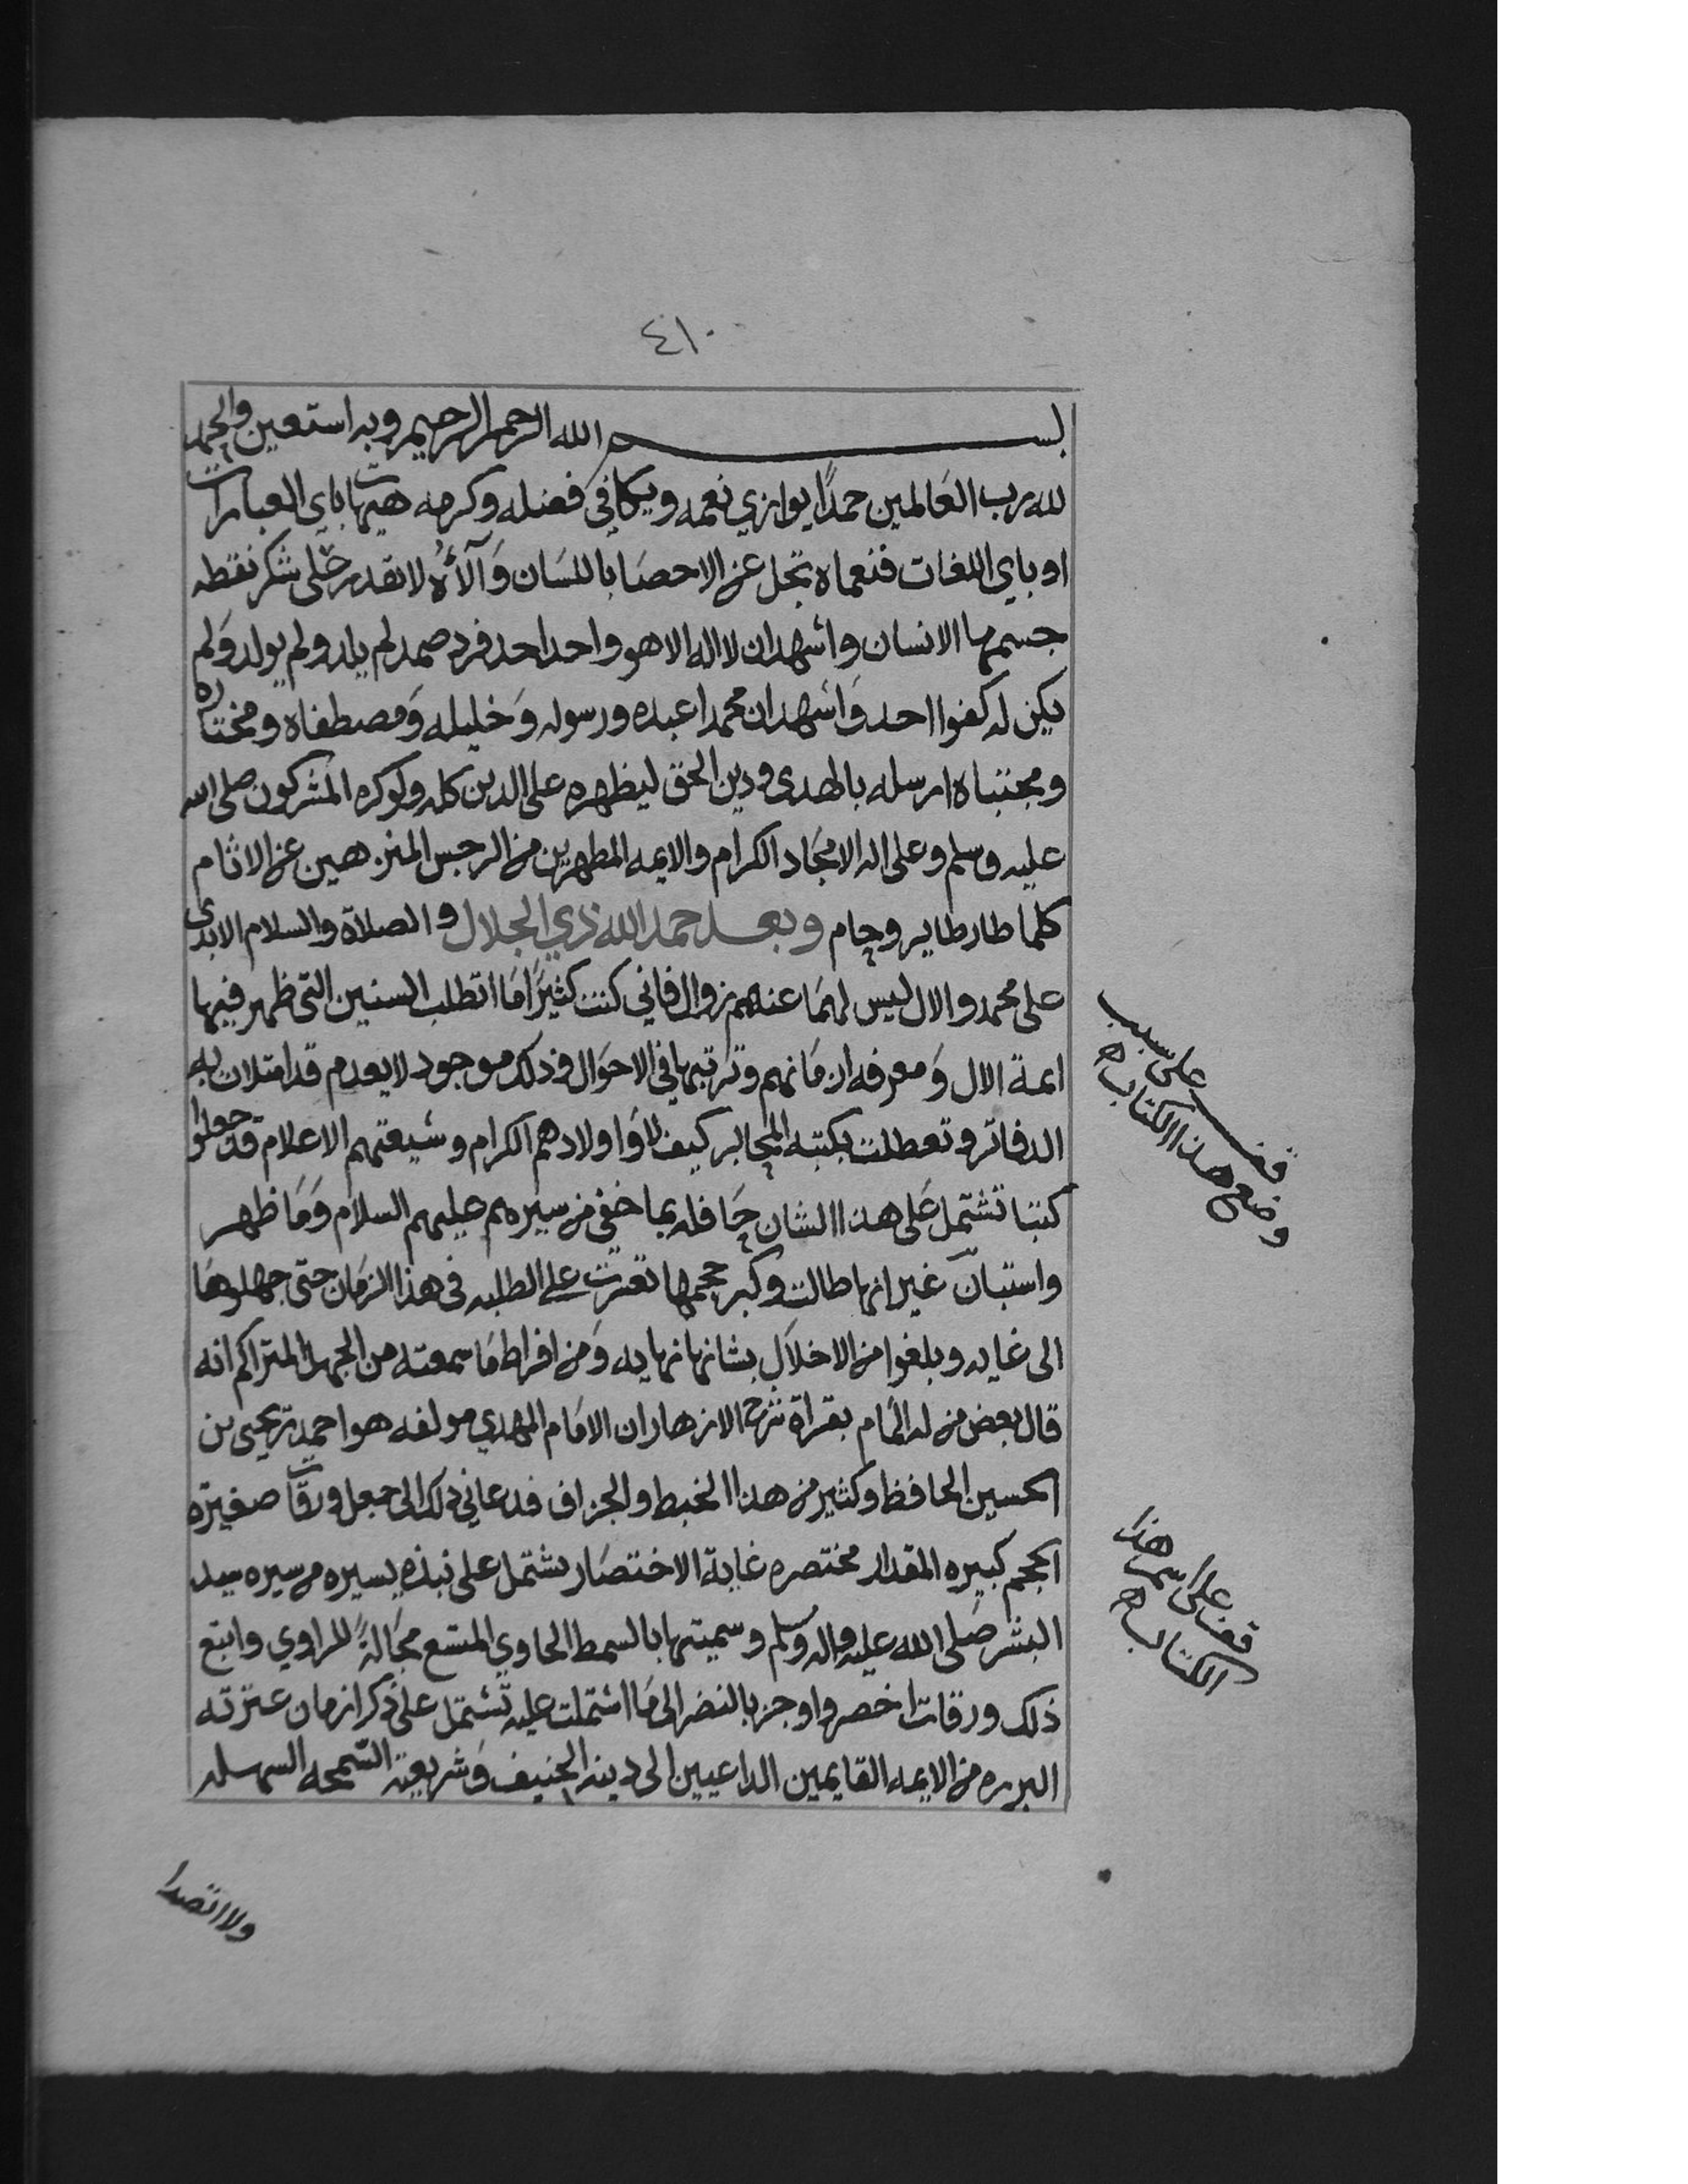 ٤١٠
بسم الله الرحمن الرحيم وبه استعين والحمد
لله رب العالمين حمدًا يوازي نعمه ويكافي فضله وكرمه هيهات باي العبارات
او باي اللغات فنعماه تجل عن الاحصا باللسان وَآلاؤُه لا تقدر على شكر نقطه
جسمها الانسان واشهد ان لا اله الا هو واحد احد فرد صمد لم يلد ولم يولد وَلم
يكن له كفوا احد وَاشهد ان محمدا عبده ورسوله وَخليله وَمصطفاه ومختاره
ومجتباه ارسله بالهدى ودين الحق ليظهره على الدين كله ولو كره المشركون صلى الله
عليه وسلم وعلى اله الامجَاد الكرام والايمه المطهرين من الرجس المنزهين عن الاثام
كلما طار طاير وحام وبعد حمد الله ذي الجلال والصلاة والسلام الابدى
على محمد والال ليس لهمَا عنهم زوال فاني كنت كثيرًا مَا اتطلب السنين التى ظهر فيها
ايمة الال وَمعرفه ازمَانهم وترتيبها في الاحوَال وذلك موجود لا يعدم قد امتلات به
الدفاتر وتعطلت بكتبه المحابر كيف لا وَاولادهم الكرام وشيعتهم الاعلام قد جعلوا
كتبا تشتمل عَلى هذا الشان حَافله بما خفى من سيرهم عليهم السلام وَمَا ظهر
واستبان غير انها طالت وكبر حجمها تعسرت على الطلبه فى هذا الزمَان حتى جهلوهَا
الى غايه وبلغوا من الاخلَالِ بشانها نهايه وَمن افراط مَا سمعته من الجهل المتراكم انه
قال بعض من له المَام بقراة شرح الازهار ان الامَام المهدي مولفه هو احمد بن يحيى بن
الحسين الحافظ وكثير من هذا الخبط والجزاف فدعاني ذلك الى جعل ورقات صغيره
الحجم كبيره المقدار مختصره غاية الاختصَار يشتمل على نبذه يسيره من سيره سيد
البشر صَلى الله عليه واله وسلم وسميتها بالسمط الحاوي المتسع مجَالهُ للراوي واتبع
ذلك ورقات اخصر واوجز بالنضر الى مَا اشتملت عليه تشتمل على ذكر ازمان عترته
البرره من الايمه القايمين الداعيين الى دينه الحنيف وَشريعته السّمحه السهله
قف على سبب
وضع هذا الكتاب ه
قف على اسم هذا
الكتاب ه
ولا اتصدا